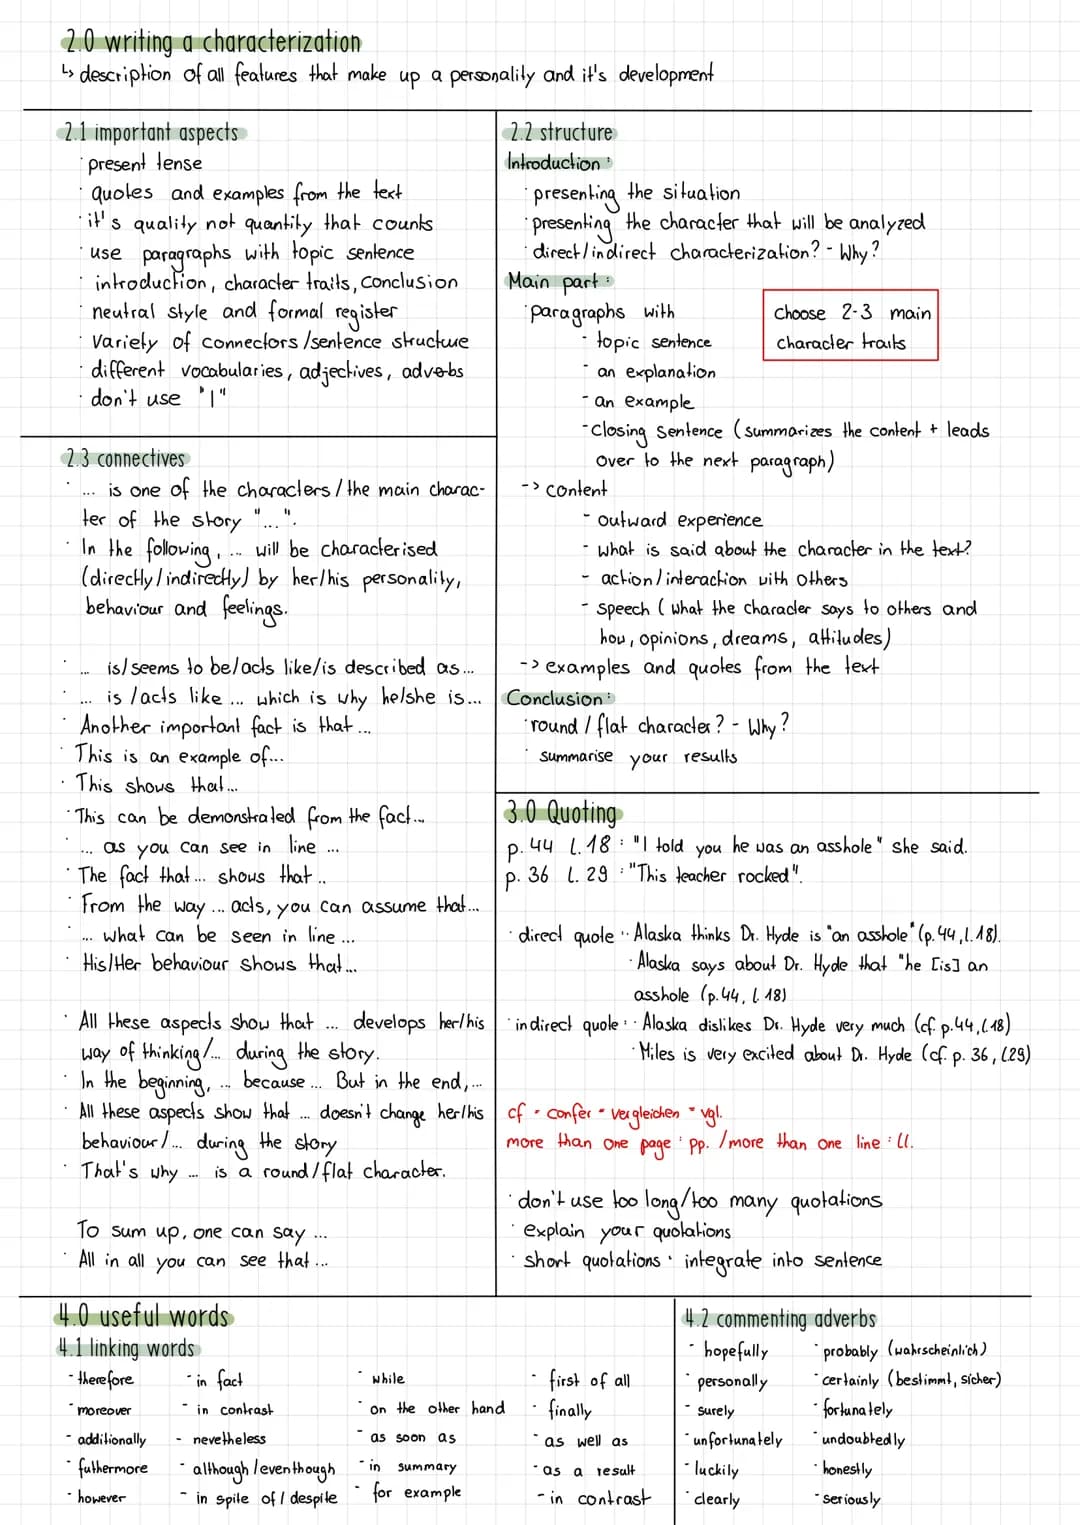 2.0 writing a characterization
↳ description of all features that make up a personality and it's development
2.1 important aspects
· present tense
· quotes and examples from the text
· it's quality not quantity that counts
· use paragraphs with topic sentence
introduction, character traits, conclusion
· neutral style and formal register
· Variety of connectors/sentence structure
· different vocabularies, adjectives, adverbs
· don't use "I"
2.3 connectives
· ... is one of the characters/the main charac-
ter of the story "...".
· In the following, ... will be characterised
(directly/indirectly) by her/his personality,
behaviour and feelings.
· ... is/seems to be/acts like/is described as...
· ... is/acts like ... which is why he/she is...
· Another important fact is that ...
· This is an example of...
· This shows that...
· This can be demonstrated from the fact...
· ... as you can see in line ...
· The fact that... shows that ..
· From the way ... acts, you can assume that...
· ... what can be seen in line ...
· His/Her behaviour shows that...
· All these aspects show that ... develops her/his
way of thinking/... during the story.
· In the beginning, ... because ... But in the end,...
· All these aspects show that ... doesn't change her/his
behaviour/... during the story
· That's why ... is a round/flat character.
To sum up, one can say ...
· All in all you can see that ...
2.2 structure
Introduction:
· presenting the situation
· presenting the character that will be analyzed
· direct/indirect characterization? - Why?
Main part:
· paragraphs with
- topic sentence
- an explanation
- an example
- closing sentence (summarizes the content + leads
over to the next paragraph)
choose 2-3 main
character traits
-> content
- outward experience
- what is said about the character in the text?
- action/interaction with others
- speech (what the character says to others and
how, opinions, dreams, attitudes)
-> examples and quotes from the text
Conclusion:
· round / flat character? - Why?
· summarise your results
3.0 Quoting
p. 44 l. 18: "I told you he was an asshole" she said.
p. 36 l. 29: "This teacher rocked".
· direct quote: · Alaska thinks Dr. Hyde is "an asshole" (p.44, l. 18).
· Alaska says about Dr. Hyde that "he [is] an
asshole (p.44, l. 18)
· indirect quote: · Alaska dislikes Dr. Hyde very much (cf. p.44, l.18)
· Miles is very excited about Dr. Hyde (cf. p. 36, l.29)
cf = confer = vergleichen = vgl.
more than one page: pp. /more than one line: ll.
· don't use too long/too many quotations
· explain your quotations
· short quotations: integrate into sentence
4.0 useful words
4.1 linking words
- therefore
- moreover
- additionally
- futhermore
- however
- in fact
- in contrast
- nevetheless
- although/eventhough
- in spite of/despite
- while
- on the other hand
- as soon as
- in summary
- for example
- first of all
- finally
- as well as
- as a result
- in contrast
4.2 commenting adverbs
- hopefully
- personally
- surely
- unfortunately
- luckily
- clearly
- probably (wahrscheinlich)
- certainly (bestimmt, sicher)
- fortunately
- undoubtedly
- honestly
- seriously